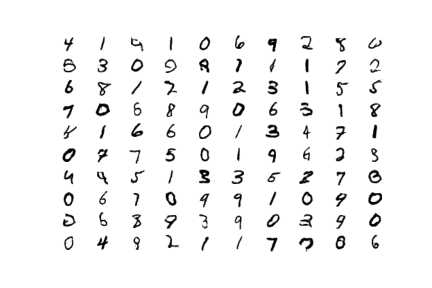 4 1 9 1 0 6 9 2 8
3 0 9 8 1 1 1 7 2
6 8 1 2 1 2 3 1 5 5
7 0 6 8 9 0 6 3 1 8
1 6 6 0 1 3 4 7 1
0 7 7 5 0 1 9 6 2
4 4 5 1 3 3 5 2 7 8
0 6 7 0 9 9 1 0 9 0
6 8 9 3 9 0 3 9 0
0 4 9 2 1 1 7 7 8 6